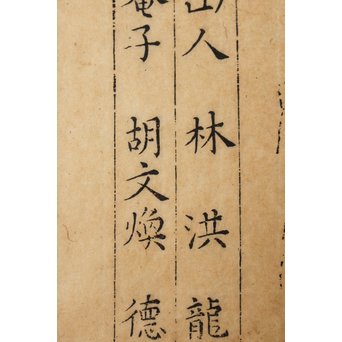 山人 林 洪 龍
菴子 胡文煥 德